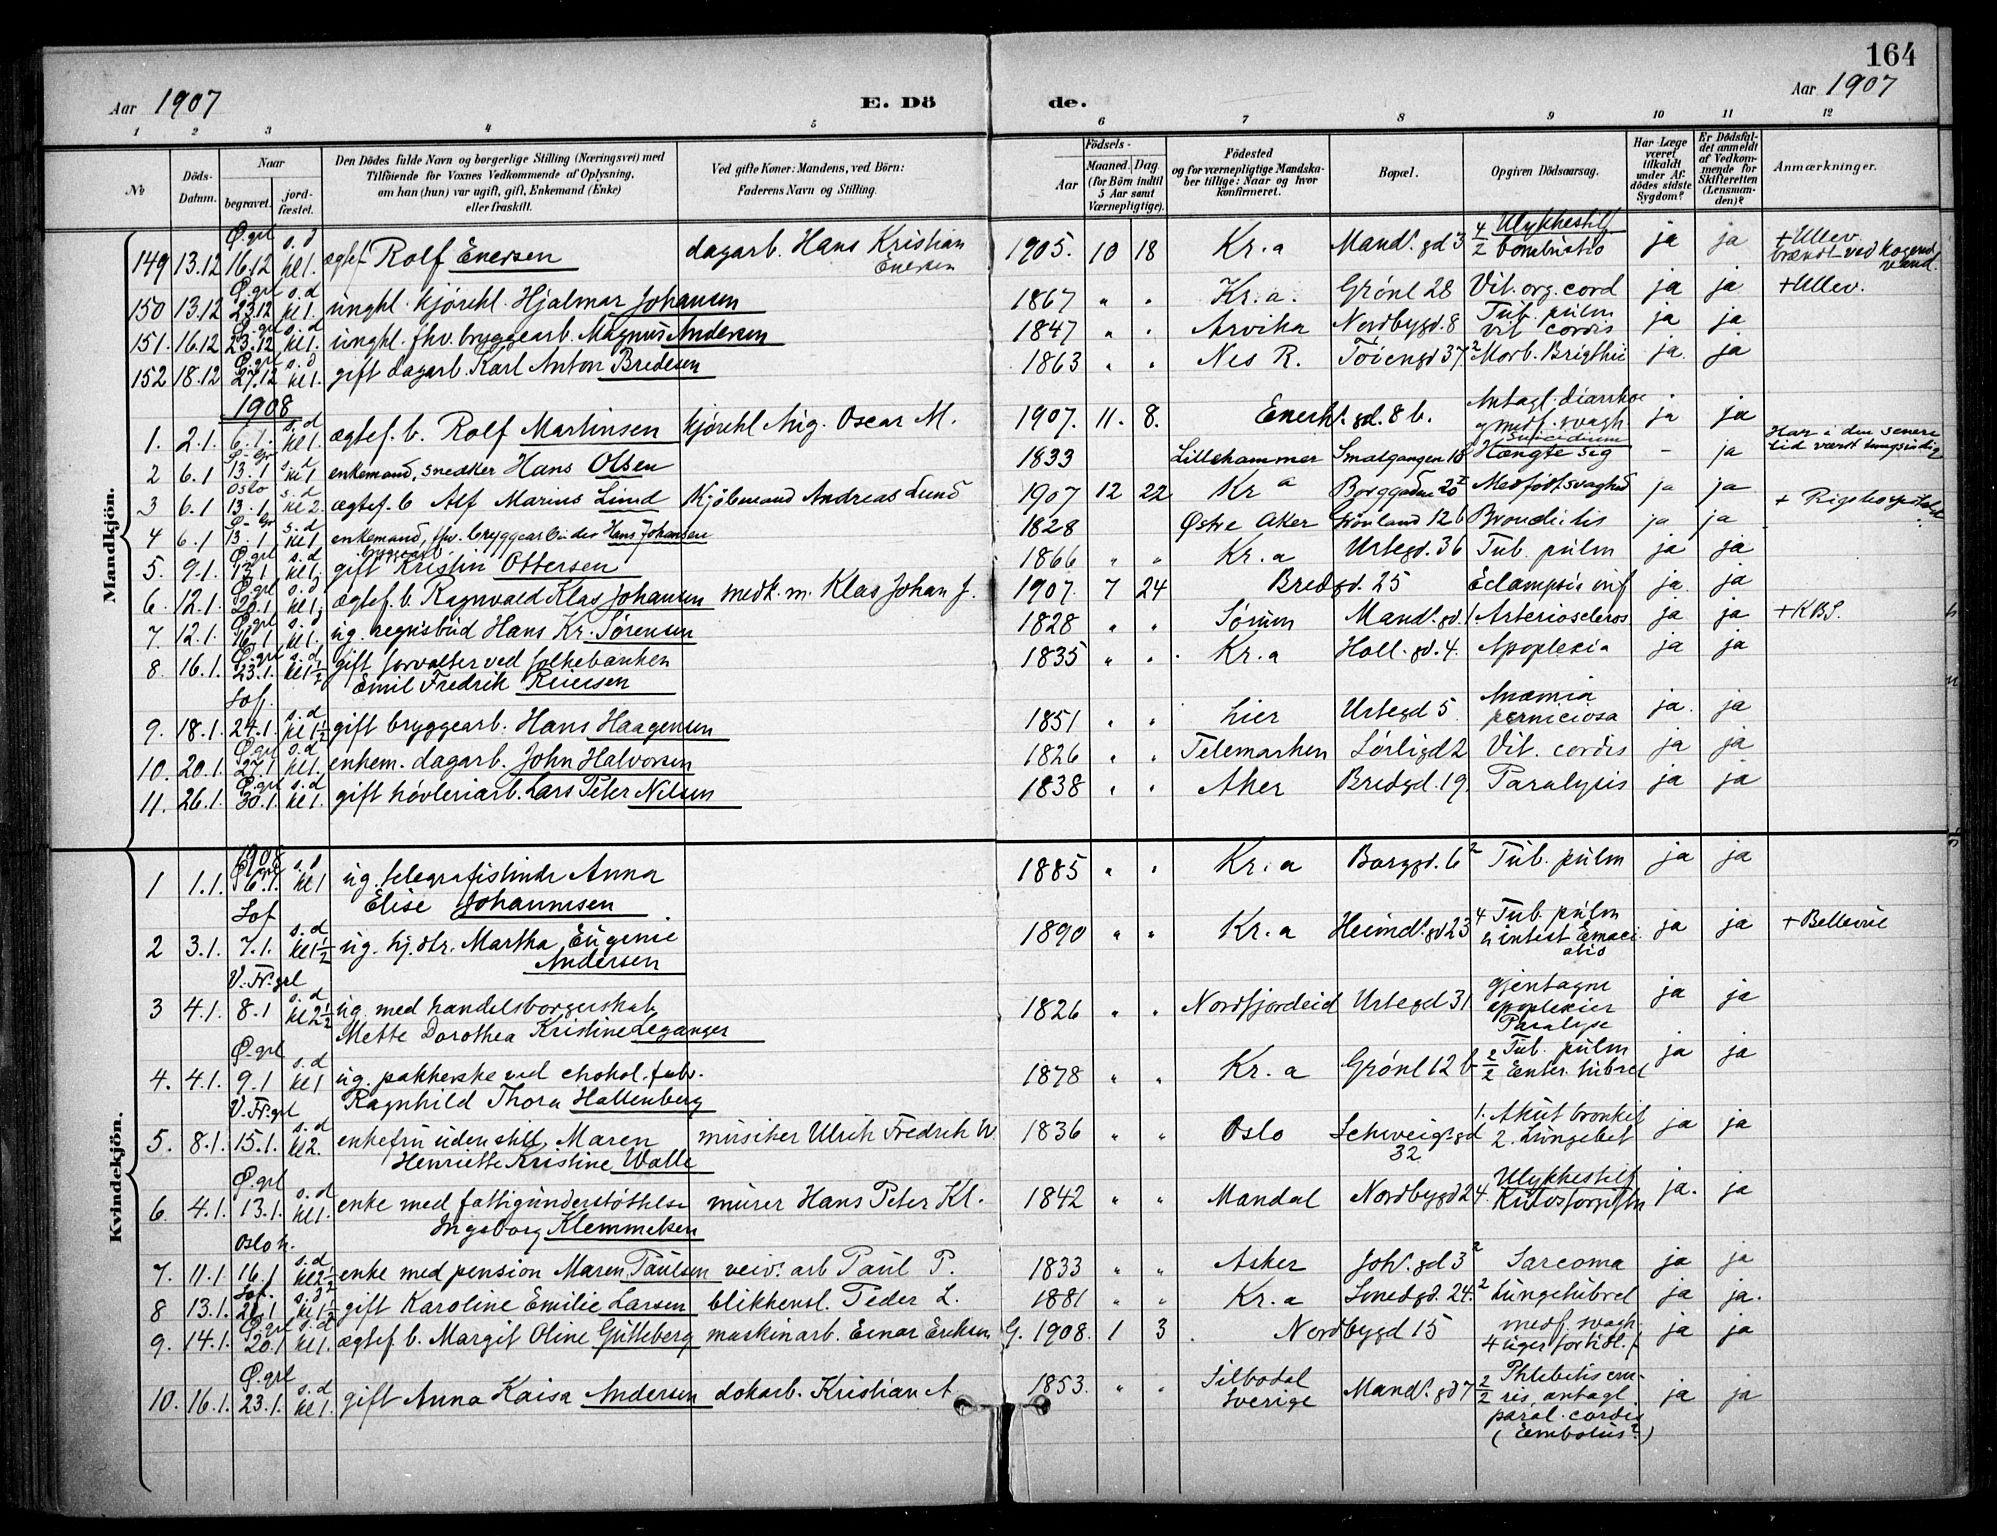 164
Aar 1907 E. Dö de. Aar 1907
1 2 3 4 5 6 7 8 9 10 11 12
No
Döds-Datum.
Naar begravet. jordfæstet.
Den Dödes fulde Navn og borgerlige Stilling (Næringsvei) med Tilföiende for Voxnes Vedkommende af Oplysning, om han (hun) var ugift, gift, Enkemand (Enke) eller fraskilt.
Ved gifte Koner: Mandens, ved Börn: Faderens Navn og Stilling.
Födsels-
Aar Maaned. Dag (for Börn indtil 5 Aar samt Værnepligtige).
Födested og for værnepligtige Mandskaber tillige: Naar og hvor konfirmeret.
Bopæl.
Opgiven Dödsaarsag.
Har Læge været tilkaldt under Afdödes sidste Sygdom?
Er Dödsfaldet anmeldt af Vedkommende for Skifteretten (Lensmanden)?
Anmærkninger.
Mandkjön.
149 13.12 Ø.grl 16.12 s.d kl 1. ægtef Rolf Enersen dagarb. Hans Kristian Enersen 1905. 10 18 Kr.a Mandls.gd 3 4/2 Ulykkestilf combustio ja ja + Ullev. brændt ved kogend vand.
150 13.12 Ø.grl 23.12 s.d kl 1. ungkl. kjørekl. Hjalmar Johansen 1867 " " Kr.a. Grønl 28 Vit. org. cord ja ja + Ullev.
151. 16.12 Ø.grl 23.12 s.d kl 1. ungkl. fhv. bryggearb. Magnus Andersen 1847 " " Arvika Nordbygd. 8 Tub. pulm vit cordis ja ja
152 18.12 Ø.grl 27.12 s.d kl 1. gift dagarb. Karl Anton Bredesen 1863 " " Nes R. Tøiengd 37² Morb. Brigthii ja. ja
1908
1. 2.1. 6.1. s.d kl 1. ægtef. b. Rolf Martinsen kjørekl Aug. Oscar M. 1907. 11. 8. Enerh.gd. 8 b. Antagl. diarrhoe g medf. svagh ja ja
2 6.1 13.1 s.d kl 1 enkemand, snedker Hans Olsen 1833 Lillehammer Smalgangen 18 Suicidium Hængte sig - ja Har i den senere tid været tungsindig
3 6.1 Oslo 13.1 s.d kl 2. ægtef. b Alf Marius Lund Kjøbmand Andreas Lund 1907 12 22 Kr a Borggaden 20 Medfødt svaghed ja ja + Rigshospitalet
4 6.1 13.1. s.d kl 1 enkemand, fhv. bryggearbeider Hans Johansen 1828 Østre Aker Grønland 12 b Bronchitis ja ja
5. 9.1. Ø.grl 13.1 s.d kl 1. gift bryggearb. Kristin Ottersen 1866 " " Kr.a Urtegd. 36 Tub. pulm ja ja
6. 12.1. Ø.grl 20.1 s.d kl 1. ægtef. b. Ragnvald Klas Johansen medk. m. Klas Johan J. 1907. 7 24 Bredgd. 25 Eclampsia inf ja. ja
7. 12.1. Ø.grl 16.1 s.d kl 1. ug. regnsbud Hans Kr. Sørensen 1828 " " Sørum Mandls.gd. 1 Arterioscleros ja ja + KBS.
8 16.1. Ø.grl 23.1. s.d kl 1½ gift forvalter ved folkebanken Emil Fredrik Reiersen 1835 " " Kr.a Holl.gd. 4. Apoplexia ja ja
9. 18.1. Sof. 24.1. s.d kl 1½ gift bryggearb. Hans Haagensen 1851 " " Lier Urtegd 5 Anæmia perniciosa ja. ja
10. 20.1. Ø.grl 27.1 s.d kl 1. enkem. dagarb. John Halvorsen 1826 " " Telemarken Sørligd 2 Vit. cordis ja ja
11. 26.1. Ø.grl 30.1 s.d kl 1. gift høvleriarb. Lars Peter Nilsen 1838 " " Aker Bredgd. 19 Paralysis ja ja
Kvindekjön.
1908
1 1.1. Ø.grl 6.1. s.d kl 1 ug. telegrafistinde Anna Elise Johannesen 1885 " " Kr.a Borggd. 6² Tub. pulm ja ja
2 3.1. Sof 7.1. s.d kl 1½ ug. hj.dtr. Martha Eugenie Andersen 1890 " " Kr.a Heimdls.gd 23 4 Tub. pulm u intest Emaciatio ja ja + Bellevue
3 4.1. V.Fr.grl 8.1 s.d kl 2½ ug. med handelsborgerskab Mette Dorothea Kristine Leganger 1826 " " Nordfjordeid Urtegd 31 gjentagne apoplexier Paralyse ja ja
4. 4.1. Ø.grl 9.1 s.d kl 1 ug. pakkerske ved chokol. fabr. Ragnhild Thora Hallenberg 1878 " " Kr.a Grønl 12 b 2/2 Tub. pulm Enter. tubrel ja ja
5. 8.1. V.Fr.grl 15.1. s.d kl 2. enkefru uden still. Maren Henriette Kristine Walle musiker Ulrik Fredrik W 1836 " " Oslo Schweigs.gd 32 1. Akut bronkit 2. Lungebet ja ja
6. 4.1. Ø.grl 13.1. s.d kl 1. enke med fattigunderstøttelse Ingeborg Klemmetsen murer Hans Peter Kl. 1842 " " Mandal Nordbygd 24. Ulykkestilf Kulosforgiftn ja. ja
7. 11.1. Oslo h. 16.1 s.d kl 2½ enke med pension Maren Paulsen veiv. arb Paul P. 1833 " " Asker Johs.gd 3² Sarcoma ja ja
8 13.1. Sof. 21.1 s.d kl 1½ gift Karoline Emilie Larsen blikkensl. Peder L. 1881 " " Kr.a Smedgd. 24.² Lungetubrel ja ja.
9. 14.1. Ø.grl 20.1 s.d kl 1. ægtef. b. Margit Oline Gutteberg maskinarb. Einar Eriksen G. 1908. 1 3 Nordbygd 15 medf. svagh 4 uger for tidl. f ja ja
10. 16.1. Ø.grl 23.1. s.d kl 1. gift Anna Kaisa Andersen dokarb. Kristian A 1853. " " Silbodal Sverige Mandls.gd 7 2/2 Phlebitis cruris, antagl. paral. cordis (Embolus?) ja ja